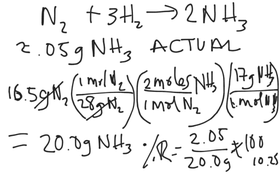 N₂ + 3H₂ → 2NH₃
2.05g NH₃ ACTUAL
16.5gN₂ (1molN₂/28gN₂)(2moles NH₃/1molN₂)(17gNH₃/1molNH₃)
= 20.0g NH₃ %R = 2.05/20.0g x 100
10.25